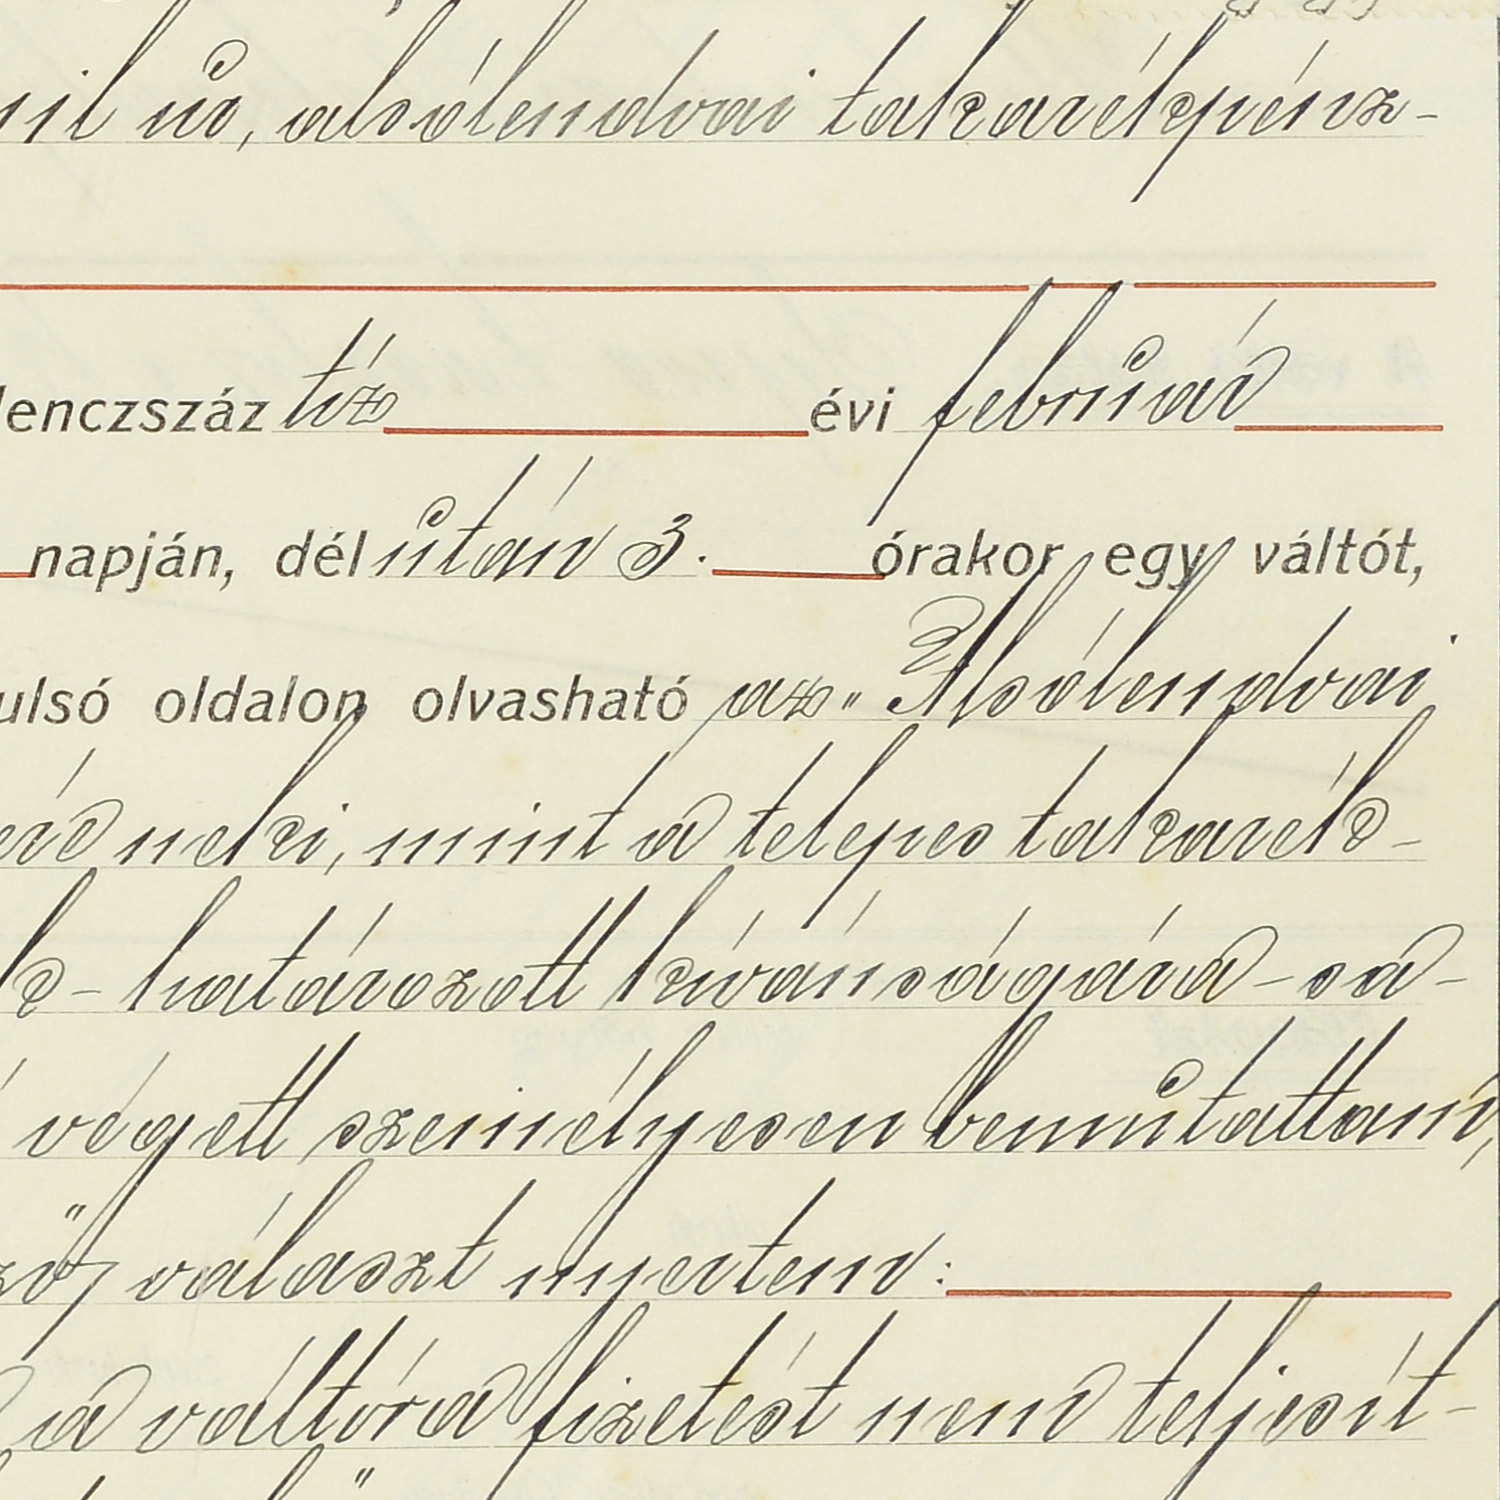 nil úr, alsólendvai takarékpénz-
lenczszáz tíz évi február
napján, dél után 3. órakor egy váltót,
ulsó oldalon olvasható az „Alsólendvai
neki, mint a telepes takarék-
k - határozott kívánságára - sa-
végett személyesen bemutattam,
választ nyertem:
a váltóra fizetést nem teljesít-